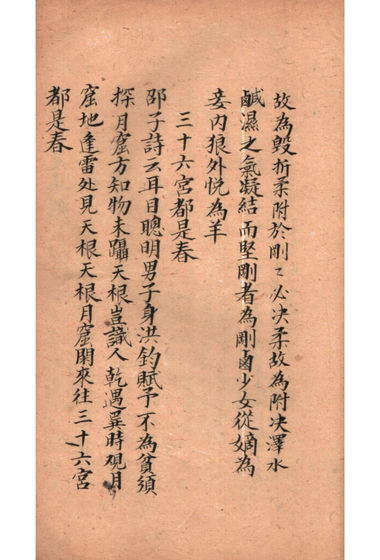 故為毀折柔附於剛〻必决柔故為附决澤水
鹹濕之氣凝結而堅剛者為剛鹵少女從嫡為
妾內狼外悅為羊
三十六宮都是春
邵子詩云耳目聰明男子身洪鈞賦予不為貧須
探月窟方知物未躡天根豈識人乾遇巽時覌月
窟地逢雷处見天根天根月窟閑來往三十六宮
都是春